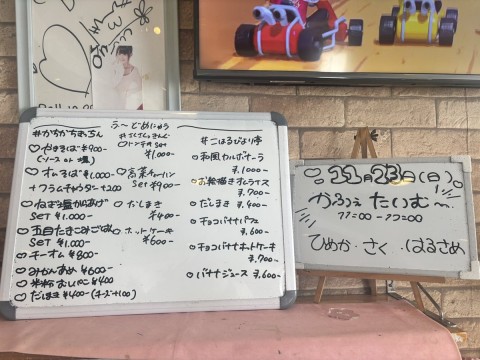 う〜どめにゅう
#かちかちきっちん
♡ やきそば ¥900-
(ソース or 塩)
♡ オムそば ¥1.000-
+クラムチャウダー +200
♡ ねぎ塩からあげ
SET ¥1.000-
♡ 五目たきこみごはん
SET ¥1.000-
♡ チーオム ¥800-
♡ みかんあめ ¥600-
♡ 米粉むしパン ¥400
♡ だしまき ¥400- (チーズ+100)
♡ トンテキ SET
¥1.000-
♡ 高菜チャーハン
SET ¥900-
♡ だしまき
¥400-
♡ ホットケーキ
¥600-
#こはるびより亭
♡ 和風カルボナーラ
¥.1000-
♡ お絵描きオムライス
¥.700-
♡ だしまき ¥.400-
♡ チョコバナナパフェ
¥.600-
♡ チョコバナナホットケーキ
¥.700-
♡ バナナジュース ¥.600-
11月23日(日)
かふぇ たいむ〜
11:00-17:00-
ひめか・さく・はるさめ